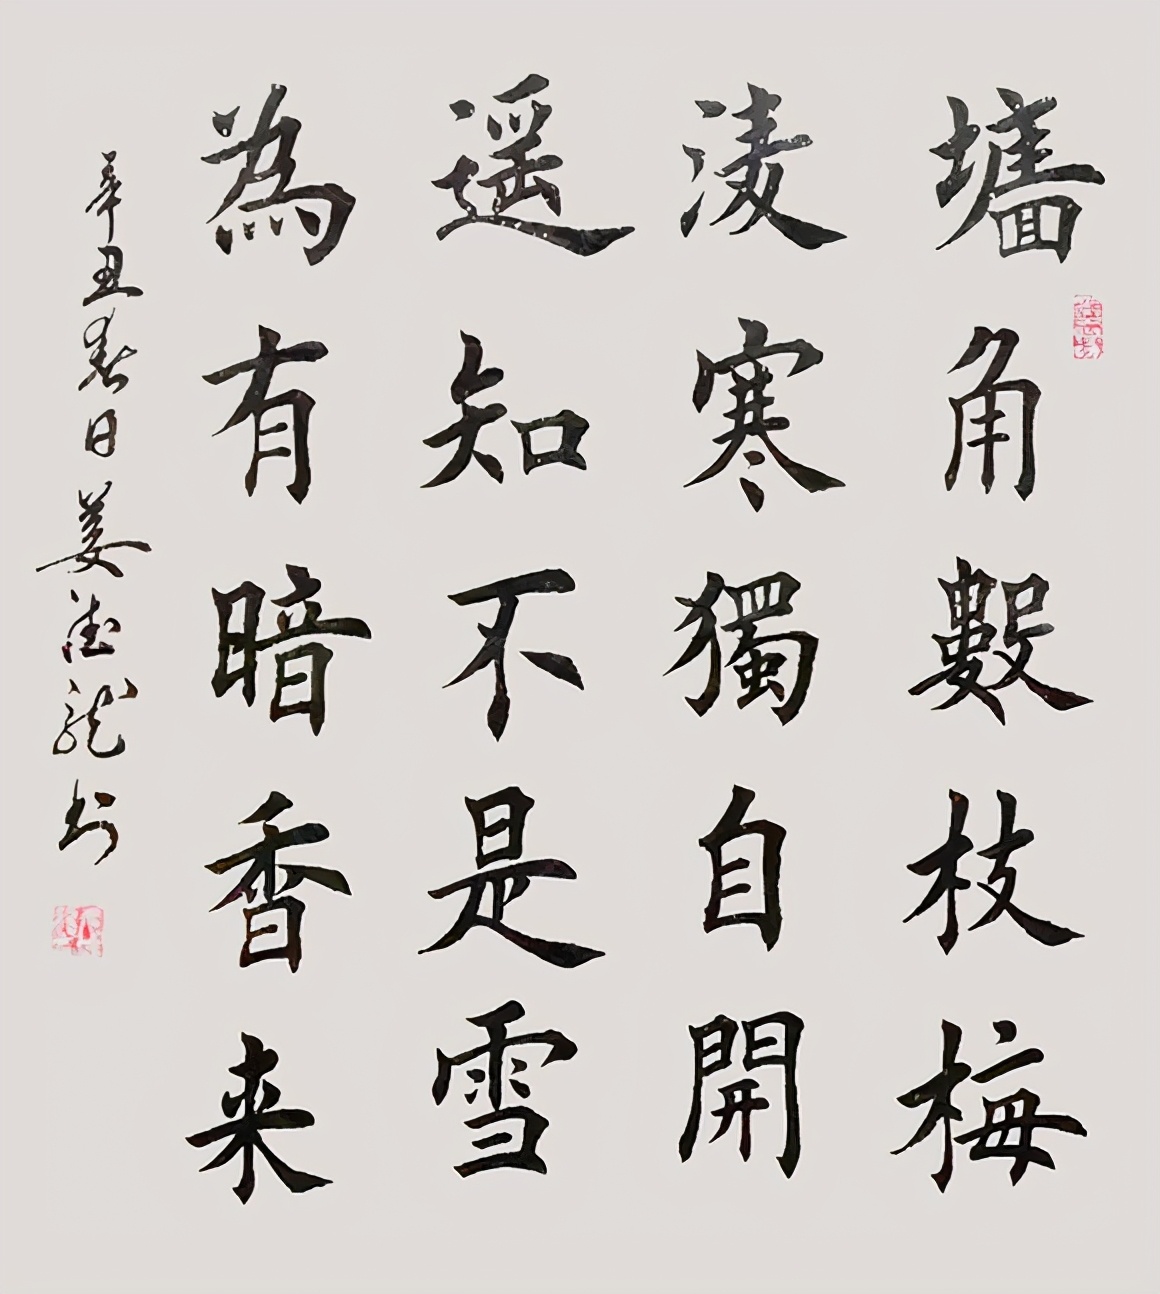 墻角數枝梅
凌寒獨自開
遥知不是雪
為有暗香来
辛丑春日姜德龍书